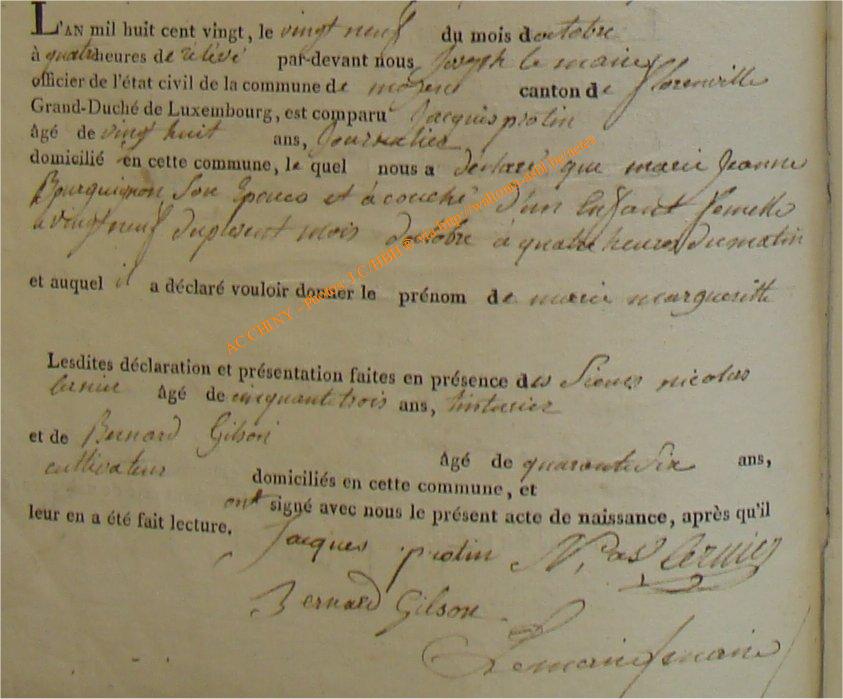 L'AN mil huit cent vingt, le vingt neuf du mois doctobre
à quatre heures de relévé par-devant nous Joseph le maire
officier de l'état civil de la commune de moyen canton de florenville
Grand-Duché de Luxembourg, est comparu Jacques protin
âgé de vingt huit ans, Journalier
domicilié en cette commune, le quel nous a declaré que marie Jeanne
Bourguignon Son Epouse et acouché d'un Enfant femelle
a vingt neuf du present mois doctobre à quatre heures du matin
et auquel il a déclaré vouloir donner le prénom de marie margueritte
Lesdites déclaration et présentation faites en présence des Sieurs nicolas
lernier âgé de cinquante trois ans,
et de Bernard Gilson
âgé de quarante Six ans,
cultivateur
domiciliés en cette commune, et
ont signé avec nous le présent acte de naissance, après qu'il
leur en a été fait lecture.
Jacques protin N. as lernier
Bernard Gilson
Lemaire
AC CHINY - photos J C HBH © via http://wallonia-asbl.be/actes